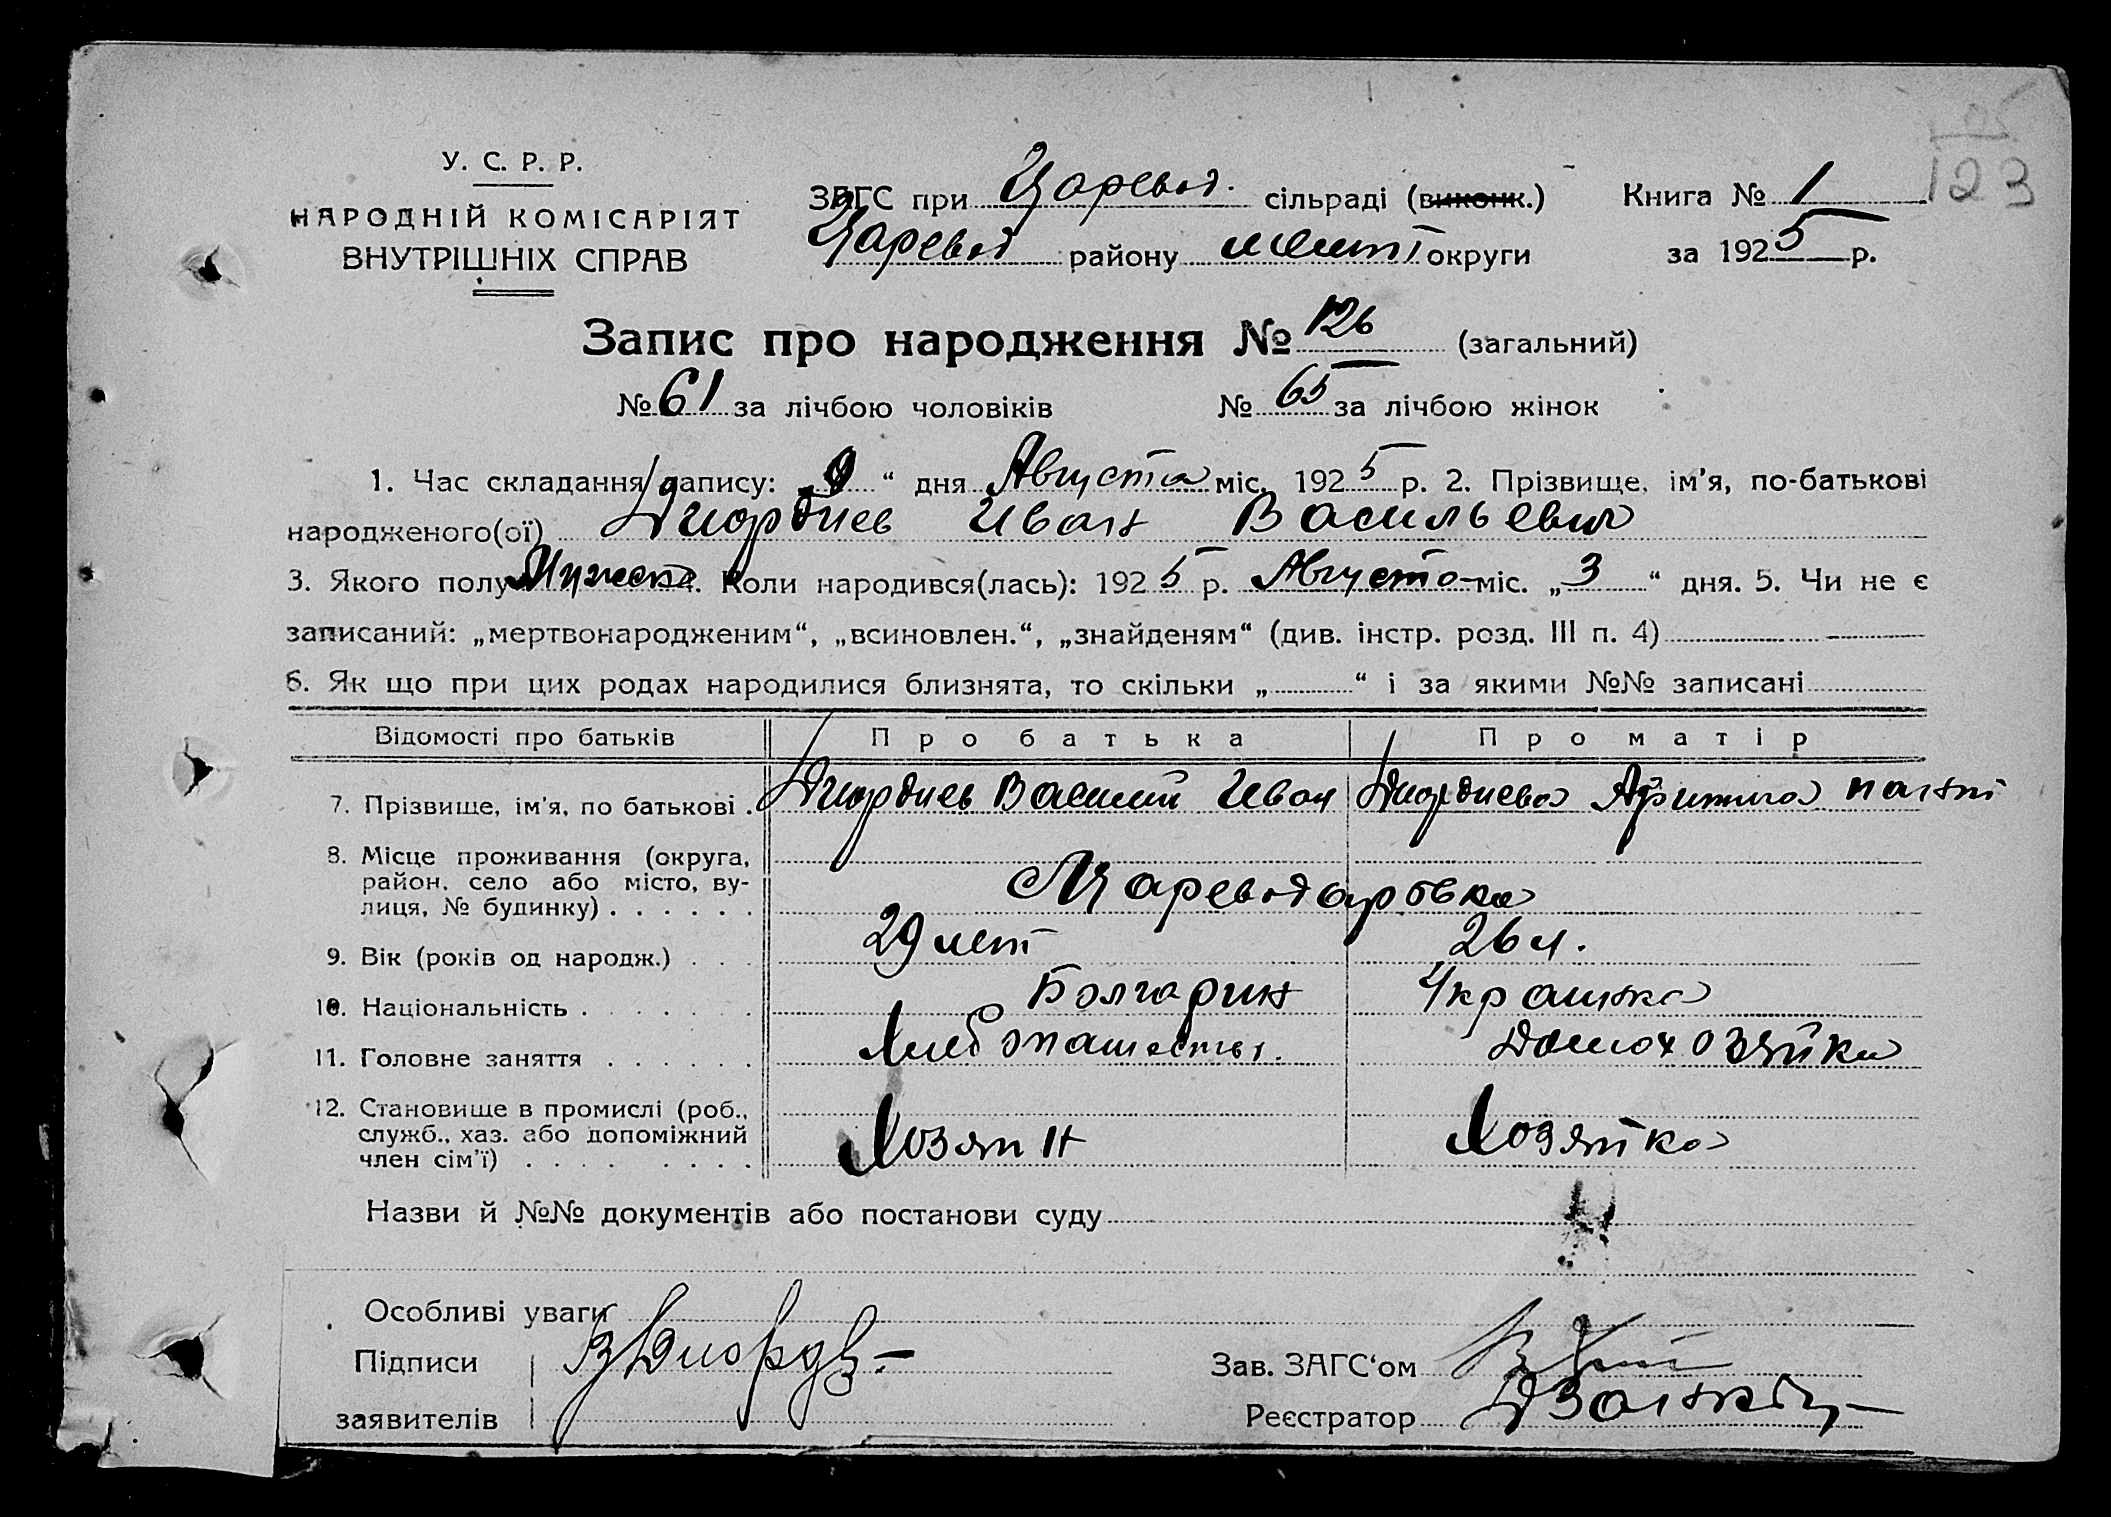 123
У. С. Р. Р.
НАРОДНІЙ КОМІСАРІЯТ
ВНУТРІШНІХ СПРАВ
ЗАГС при Царевод. сільраді (виконк.) Книга № 1
Царевод району мелит округи за 1925 р.
Запис про народження № 126 (загальний)
№ 61 за лічбою чоловіків № 65 за лічбою жінок
1. Час складання запису: „9“ дня Августа міс. 1925 р. 2. Прізвище, ім'я, по-батькові
народженого(ої) Диордиев Иван Васильевич
3. Якого полу Мужск. 4. Коли народився(лась): 1925 р. Августа міс. „3“ дня. 5. Чи не є
записаний: „мертвонародженим“, „всиновлен.“, „знайденям“ (див. інстр. розд. III п. 4)
6. Як що при цих родах народилися близнята, то скільки „ “ і за якими №№ записані
Відомості про батьків Про батька Про матір
7. Прізвище, ім'я, по батькові . Диордиев Василий Иван Диордиева
8. Місце проживання (округа,
район, село або місто, ву-
лиця, № будинку) . . . . . . Цареводаровка
9. Вік (років од народж.) . . . 29 лет 26 л.
10. Національність . . . . . . . Болгарин Украинка
11. Головне заняття . . . . . . Хлебопашество. Домохозяйка
12. Становище в промислі (роб.,
служб., хаз. або допоміжний
член сім'ї) . . . . . . . . Хозяин Хозяйка
Назви й №№ документів або постанови суду
Особливі уваги
Підписи Зав. ЗАГС'ом
заявителів Реєстратор